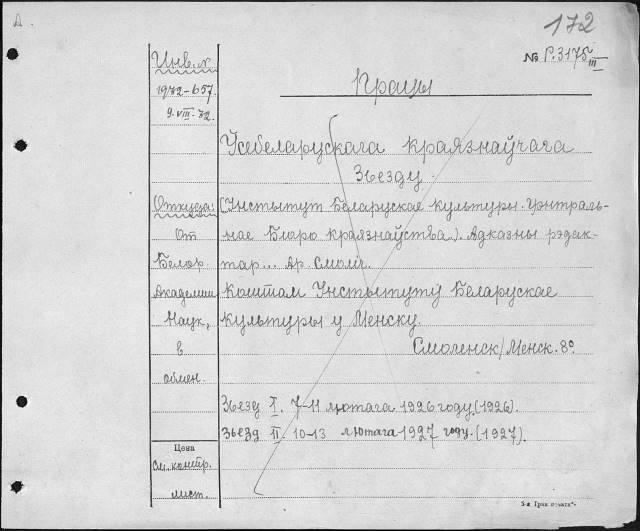 172
№ Р.3175 III
Инв. №
1932-657.
9.VIII-32.
Працы
Усебеларускага краязнаўчага
Зьезду
Откуда:
От
Белор.
Академии
Наук,
в
обмен.
(Інстытут Беларускае культуры. Цэнтраль-
нае Бюро краязнаўства). Адказны рэдак-
тар... Ар. Смоліч.
Коштам Інстытуту Беларускае
культуры у Менску.
Смоленск/Менск. 8º
Зьезд I. 7-11 лютага 1926 году. (1926).
Зьезд II. 10-13 лютага 1927 году. (1927).
Цена
См. контр.
лист.